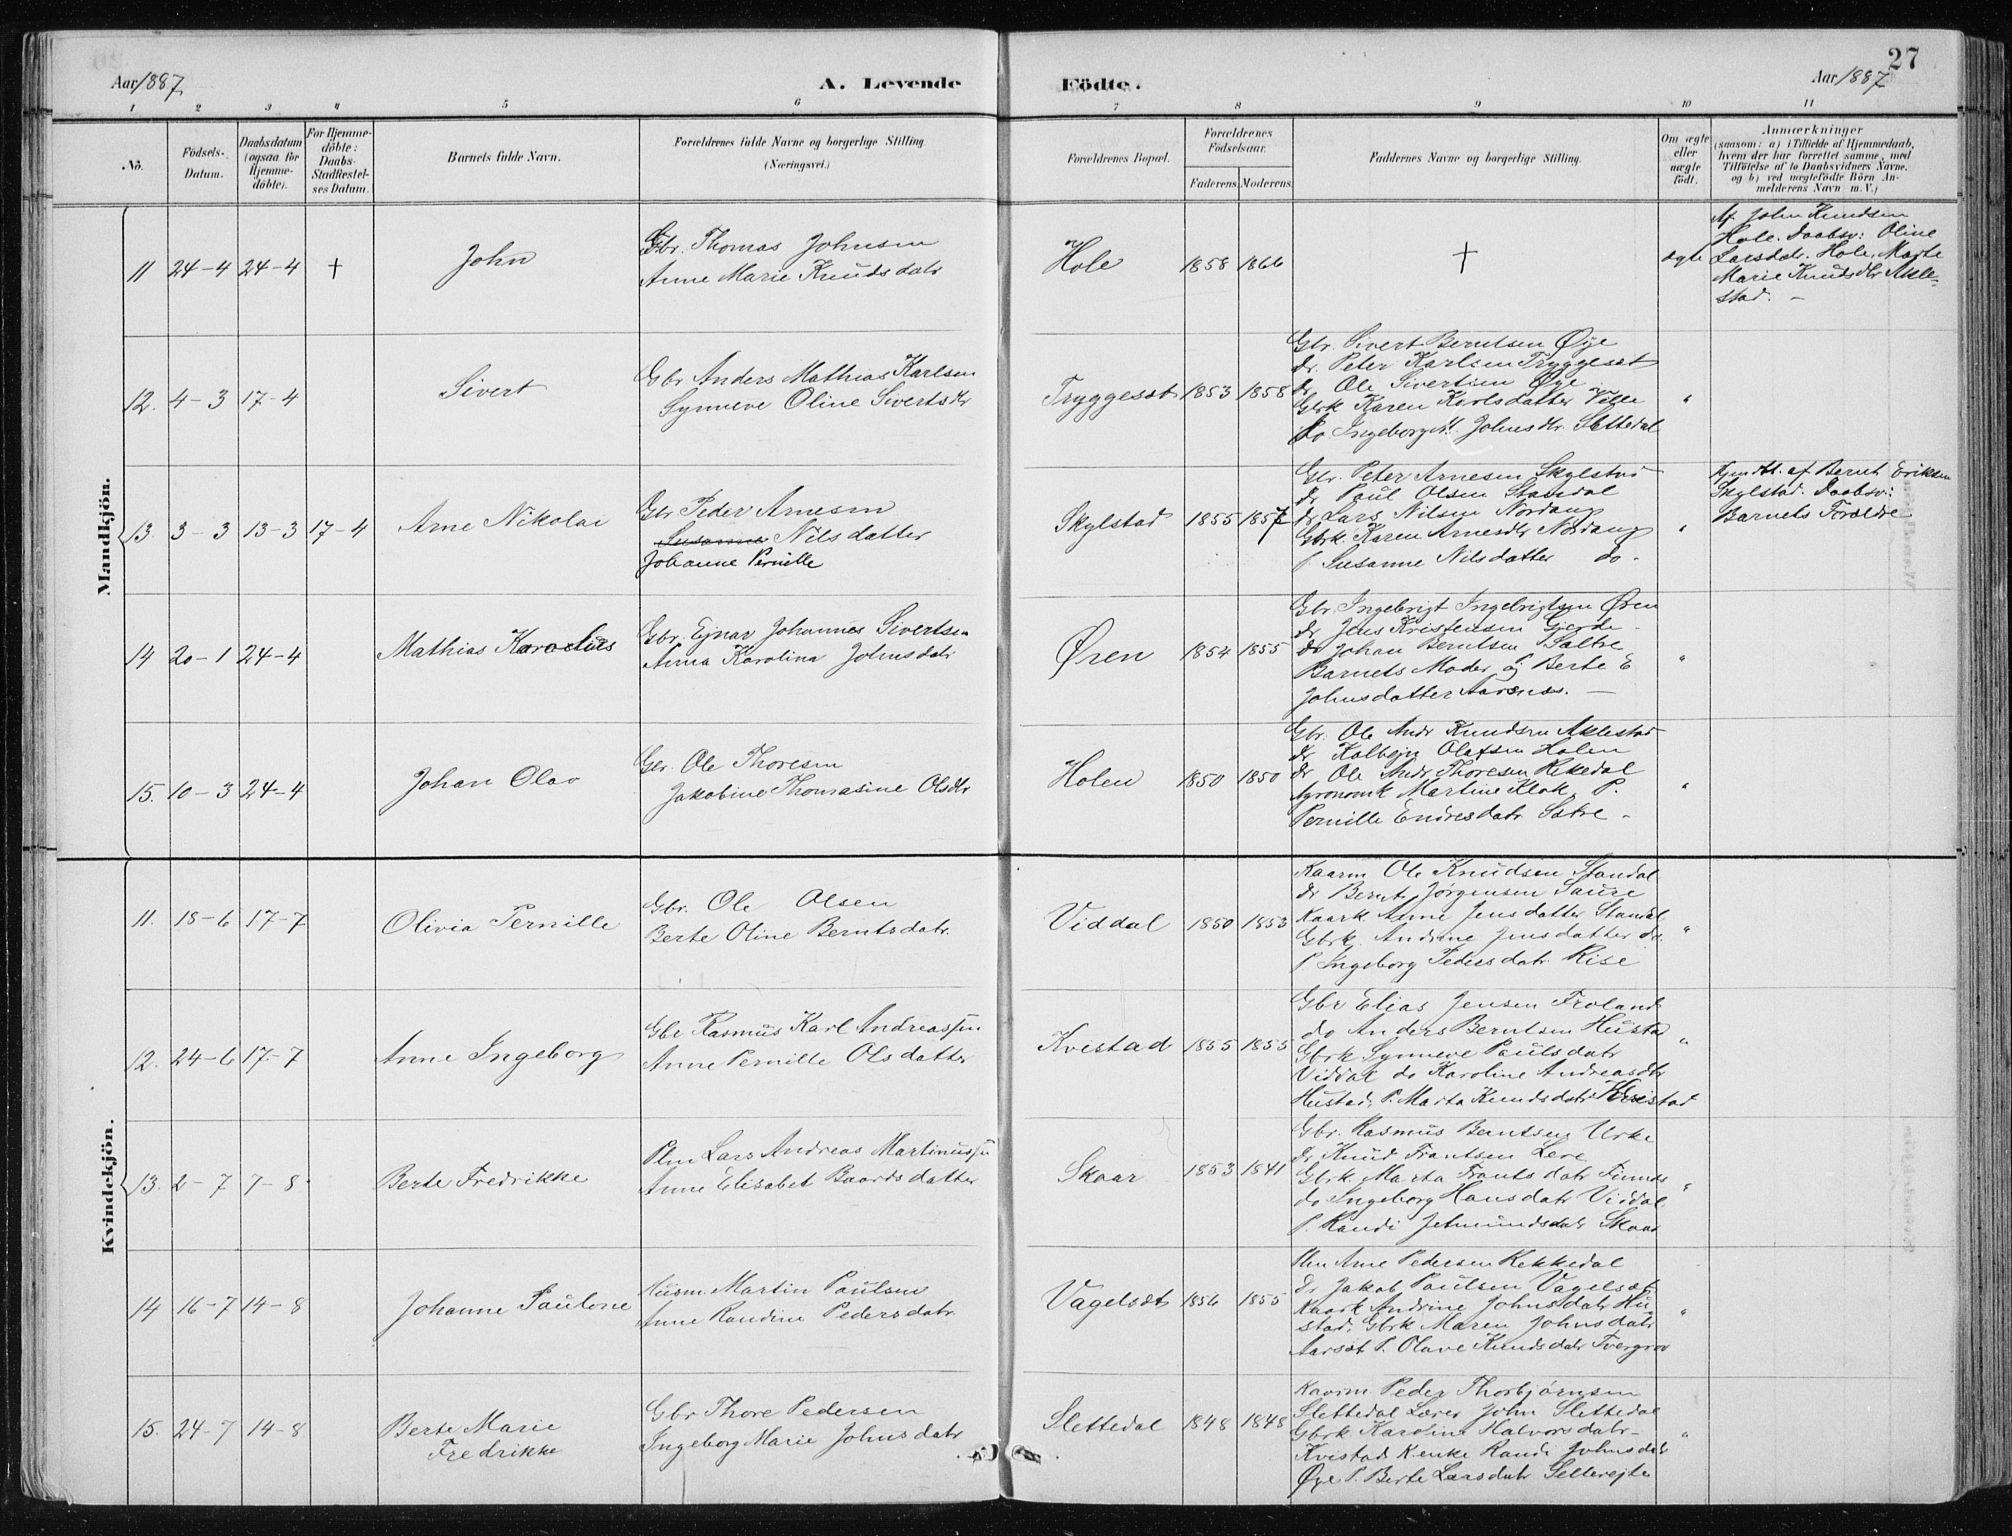 27
Aar 1887
A. Levende
Födte.
Aar 1887
1 2 3 4 5 6 7 8 9 10 11
No.
Födsels-Datum.
Daabsdatum (ogsaa for Hjemme-döbte).
For Hjemme-döbte: Daabs-Stadfæstel-ses Datum.
Barnets fulde Navn.
Forældrenes fulde Navne og borgerlige Stilling (Næringsvei.)
Forældrenes Bopæl.
Forældrenes Födselsaar.
Faderens. Moderens.
Faddernes Navne og borgerlige Stilling.
Om ægte eller uægte födt.
Anmærkninger
(saasom: a) i Tilfælde af Hjemmedaab,
hvem der har forrettet samme, med
Tilföielse af to Daabsvidners Navne.
og b) ved uægtefödte Börn An-
melderens Navn m. V.)
Mandkjön.
11 24-4 24-4 † John
Gbr. Thomas Johnsen
Anne Marie Knudsdatr
Hole 1858 1866 † ægte
Af John Knudsen
Hole. Daabsv: Oline
Larsdatr. Hole, Marte
Marie Knutsdtr Akle-
stad. -
12. 4-3 17-4 Sivert
Gbr Anders Mathias Karlsen
Synneve Oline Sivertsdtr
Tryggesæt 1853 1858
Gbr. Sivert Berntsen Øye
Dr. Peter Karlsen Tryggesæt
Dr. Ole Sivertsen Øye
Gbrk Karen Karlsdatter Ville
Do Ingeborg M. Johnsdtr. Slettedal
"
13. 3-3 13-3 17-4 Arne Nikolai
Gbr Peder Arnesen
Susanne Nilsdatter
Johanne Pernille
Skylstad 1855 1857
Gbr. Peter Arnesen Skylstad
Dr Paul Olsen Standal
Dr Lars Nilsen Nordang
Gbrk. Karen Arnesdtr Nordang
P Susanne Nilsdatter do -
"
Hjemdbt. af Bernt Eriksen
Skylstad. Daabsv:
Barnets Forældre
14 20-1 24-4 Mathias Karolius
Gbr. Ejnar Johannes Sivertsen
Anna Karolina Johnsdatr
Øren 1854 1855
Gbr. Ingebrigt Ingebrigtsen Øren
Dr Jens Kristensen Gjerde -
do Johan Berntsen Sætre
Barnets Moder og Berte E
Johnsdatter Aarsnes. -
"
15. 10-3 24-4 Johan Olav
Gbr. Ole Thoresen
Jakobine Thomasine Olsdtr
Holen 1850 1850
Gbr. Ole Andr Knudsen Aklestad
Dr. Kolbejn Olafsen Holen
Dr Ole Andr Thoresen Rekedal
Agronomk Martine Klok. P.
Pernille Endresdatr Sætre -
"
Kvindekjön.
11. 18-6 17-7 Olivia Pernille
Gbr. Ole Olsen
Berte Oline Berntsdatr.
Viddal 1850 1853
Kaarm Ole Knudsen Standal
Dr Bernt Jørgensen Saure
Kaark. Anne Jensdatter Standal
Gbrk. Andrine Jensdatter do.
P Ingeborg Pedersdatr. Rise
"
12. 24-6 17-7 Anne Ingeborg
Gbr Rasmus Karl Andreassen
Anne Pernille Olsdatter
Kvistad 1855 1855
Gbr Elias Jensen Froland
do Anders Berntsen Hustad
Gbrk Synneve Paulsdatr
Viddal do Karoline Andreasdtr
Hustad, P. Marta Knudsdatr Kvistad
"
13. 2-7 7-8 Berte Fredrikke
Plm Lars Andreas Martinussen
Anne Elisabet Baardsdatter
Skaar 1853 1841
Gbr. Rasmus Berntsen Urke
Dr Knud Frantsen Leve
Gbrk Marta Frantsdatr Finnes
do Ingeborg Hansdatr Viddal
P. Randi Jetmundsdatr Skaar
"
14 16-7 14-8 Johanne Paulone
Husm. Martin Paulsen
Anne Randine Pedersdatr.
Vagelsæt 1856 1855
Plm Arne Pedersen Rekkedal
Dr Jakob Paulsen Vagelsæt
Kaark Andrine Johnsdatr Hu-
stad, Gbrk Maren Johnsdatr
Aarsæt P. Olave Knudsdatr Tvergrov
"
15. 24-7 14-8 Berte Marie Fredrikke
Gbr Thore Pedersen
Ingeborg Marie Johnsdatr
Slettedal 1848 1848
Kaarm Peder Thorbjørnsen
Slettedal Lærer John Slettedal
Gbrk Karoline Halvorsdatr-
Kvistad Kenke Randi Johnsdatr
Øye P. Berte Larsdatr
"